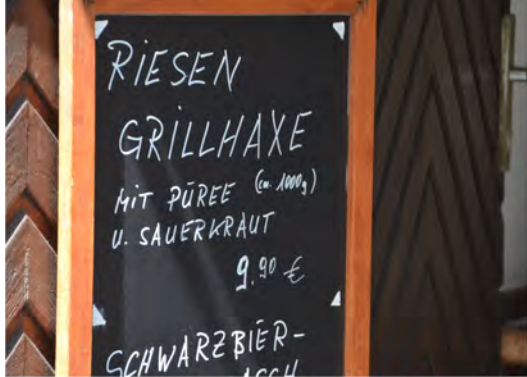 RIESEN
GRILLHAXE
MIT PÜREE (ca. 1000g)
U. SAUERKRAUT
9.90 €
SCHWARZBIER-